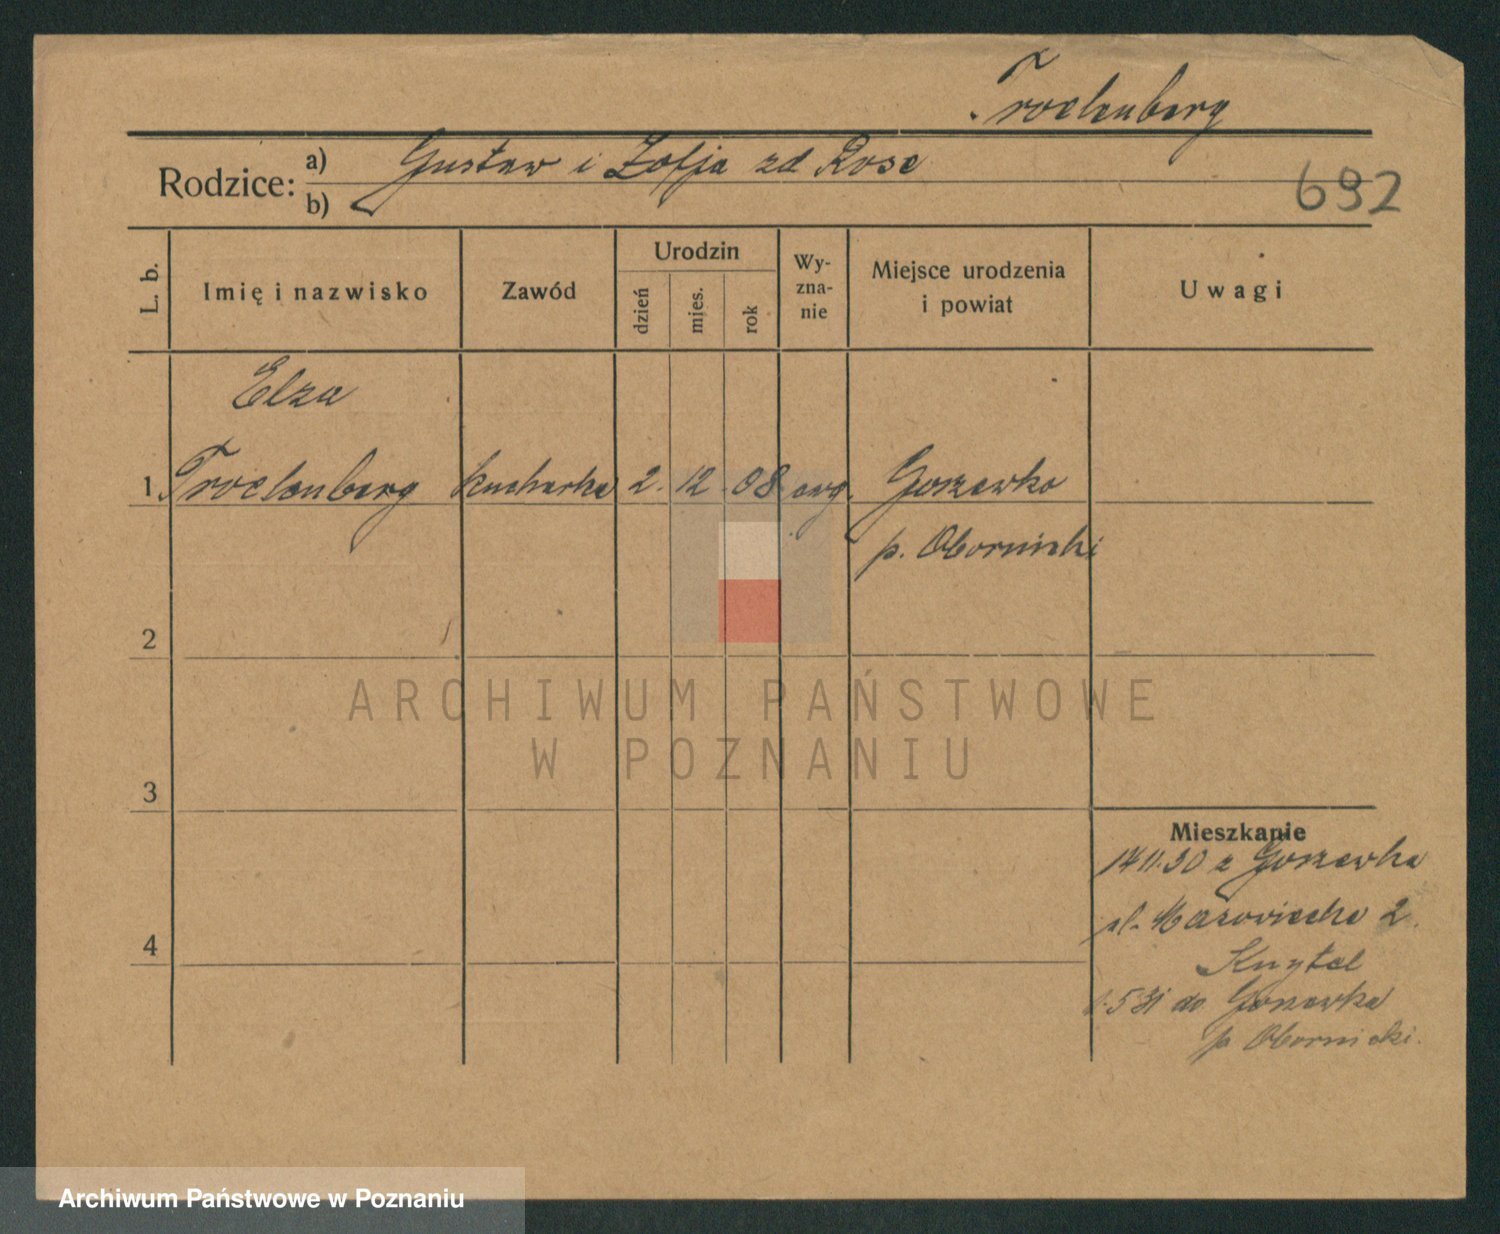 Troelenberg
Rodzice: a) Gustaw i Zofja zd Rose
b)
692
L. b.
Imię i nazwisko
Zawód
Urodzin
dzień
mies.
rok
Wy-
zna-
nie
Miejsce urodzenia
i powiat
Uwagi
Elza
1 Troelenberg kucharka 2. 12 08 ewg. Gorzewko
p. Obornicki
2
3
4
ARCHIWUM PAŃSTWOWE
W POZNANIU
Mieszkanie
14 11.30 z Gorzewka
ul. Mazowiecka 2.
Knytel
1.5 31 do Gorzewka
p Obornicki.
Archiwum Państwowe w Poznaniu